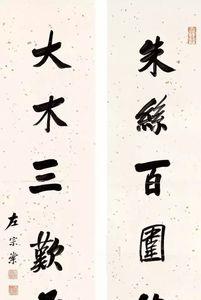 朱絲百圍
大木三歎
左宗棠